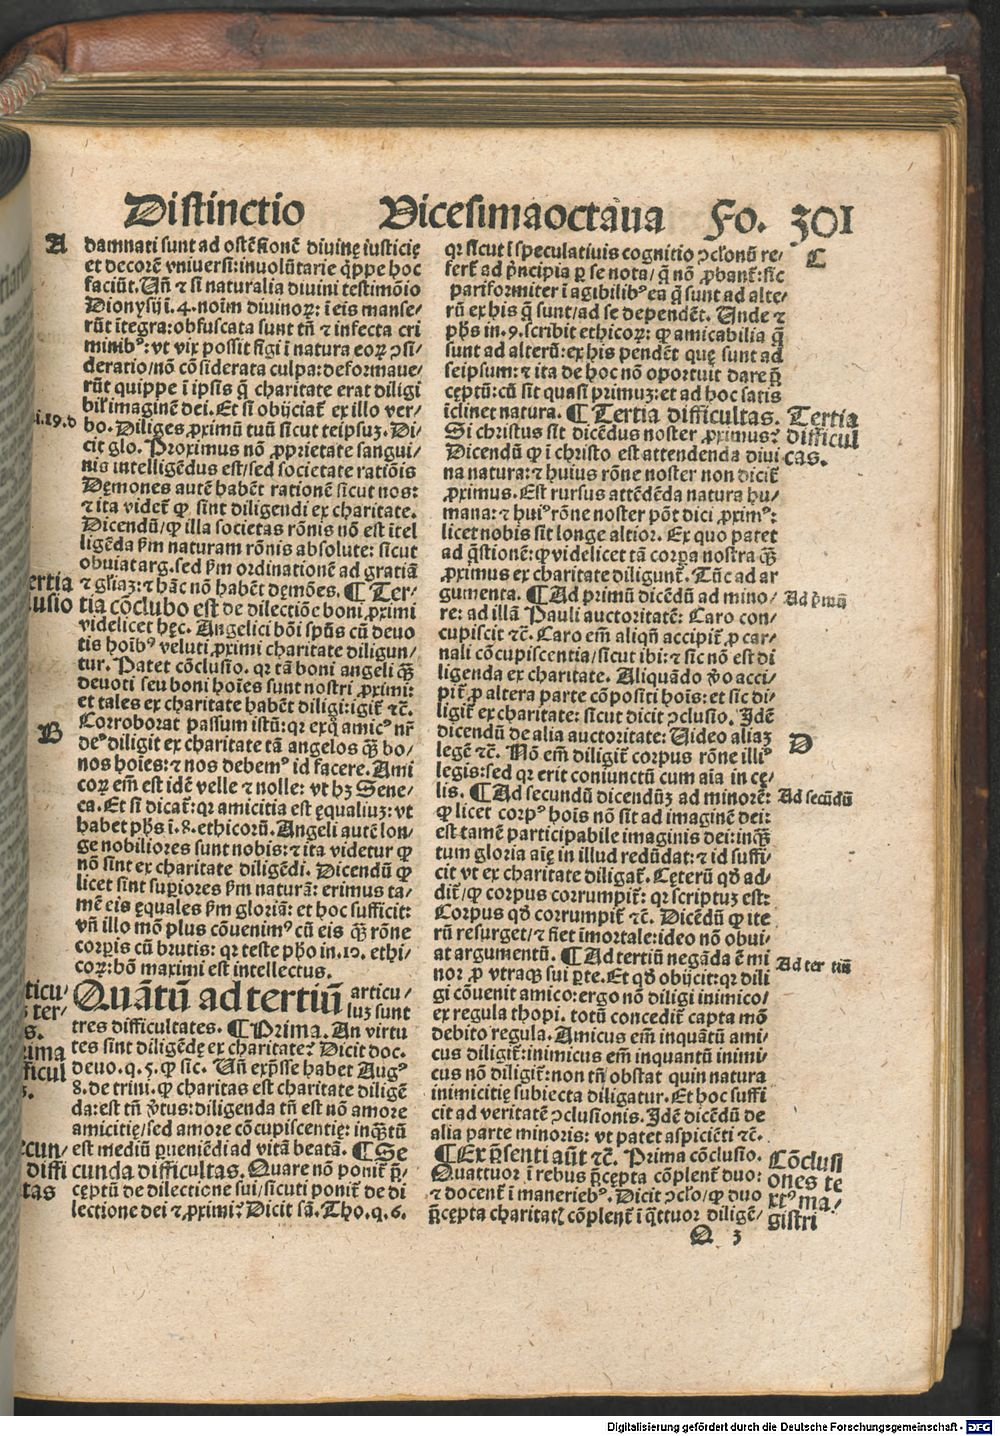 Distinctio Vicesimaoctaua Fo. 301
A
damnati sunt ad ostēsionē diuinę iusticię
et decorē vniuersi: inuolūtarie q̄ppe hoc
faciūt. Uñ ⁊ si naturalia diuini testimōio
Dionysij ī.4.noīm diuinoꝝ: ī eis manse/
rūt ītegra: obfuscata sunt tñ ⁊ infecta cri
minibꝰ: vt vix possit figi ī natura eoꝝ ↄsi/
deratio/nō cōsiderata culpa: deformaue/
rūt quippe ī ipsis q̄ charitate erat diligi
bił imaginē dei. Et si obijciat̃ ex illo ver/
i.19.d
bo. Diliges ꝓximū tuū sicut teipsuꝫ. Di/
cit glo. Proximus nō ꝓprietate sangui/
nis intelligēdus est/sed societate ratiōis
Dęmones autē habēt rationē sicut nos:
⁊ ita videt̃ ꝙ sint diligendi ex charitate.
Dicendū/ꝙ illa societas rōnis nō est ītel
ligēda ẜm naturam rōnis absolute: sicut
obuiat arg. sed ẜm ordinationē ad gratiā
ertia
⁊ gl̃iaꝫ: ⁊ hāc nō habēt dęmōes. ¶ Ter/
lusio
tia cōclusio est de dilectiōe boni ꝓximi
videlicet hęc. Angelici bōi spūs cū deuo
tis hoībꝰ veluti ꝓximi charitate diligun/
tur. Patet cōclusio. qꝛ tā boni angeli q̄ꝫ
deuoti seu boni hoīes sunt nostri ꝓximi:
et tales ex charitate habēt diligi: igit̃ ⁊c̄.
B
Corroborat passum istū: qꝛ exq̄ amicꝰ nr̄
deꝰ diligit ex charitate tā angelos q̄ꝫ bo/
nos hoīes: ⁊ nos debemꝰ id facere. Ami
coꝝ em̄ est idē velle ⁊ nolle: vt hꝫ Sene/
ca. Et si dicat̃: qꝛ amicitia est ęqualiuꝫ: vt
habet ph̄s ī.8.ethicorū. Angeli autē lon/
ge nobiliores sunt nobis: ⁊ ita videtur ꝙ
nō sint ex charitate diligēdi. Dicendū ꝙ
licet sint superiores ẜm naturā: erimus ta/
mē eis ęquales ẜm gloriā: et hoc sufficit:
vñ illo mō plus cōuenimꝰ cū eis q̄ꝫ rōne
corꝑis cū brutis: qꝛ teste ph̄o in.10. ethi/
coꝝ: hō maximi est intellectus.
ticu/
Quātū ad tertiū articu/
s ter/
luꝫ sunt
s.
tres difficultates. ¶ Prima. An virtu
ima
tes sint diligēdę ex charitate? Dicit doc.
ficul
deuo.q.5.ꝙ sic. Uñ exp̄sse habet Augꝰ
8.de trini.ꝙ charitas est charitate diligē
da: est tñ v̄tus: diligenda tñ est nō amore
amicitię/sed amore cōcupiscentię: inq̄tū
ecun/
est mediū ꝑueniēdi ad vitā beatā. ¶ Se
diffi
cunda difficultas. Quare nō ponit̃ p̄/
tas
cęptū de dilectione sui/sicuti ponit̃ de di
lectione dei ⁊ ꝓximi? Dicit sā. Tho.q.6.
C
qꝛ sicut ī speculatiuis cognitio ↄclonū re/
fert̃ ad p̄ncipia ꝑ se nota/q̄ nō ꝓbant̃: sic
pariformiter ī agibilibꝰ ea q̄ sunt ad alte/
rū ex his q̄ sunt/ad se dependēt. Unde ⁊
ph̄s in.9.scribit ethicoꝝ: ꝙ amicabilia q̄
sunt ad alterū: ex his pendēt quę sunt ad
seipsum: ⁊ ita de hoc nō oportuit dare p̄
cęptū: cū sit quasi primuꝫ: et ad hoc satis
īclinet natura. ¶ Tertia difficultas.
Tertia
difficul
cas.
Si christus sit dicēdus noster ꝓximus?
Dicendū ꝙ ī christo est attendenda diui
na natura: ⁊ huius rōne noster non dicit̃
ꝓximus. Est rursus attēdēda natura hu/
mana: ⁊ huiꝰ rōne noster pōt dici ꝓximꝰ:
licet nobis sit longe altior. Ex quo patet
ad q̄stionē: ꝙ videlicet tā corꝑa nostra q̄ꝫ
ꝓximus ex charitate diligunt̃. Tūc ad ar
gumenta. ¶ Ad primū dicēdū ad mino/
Ad p̄mū
re: ad illā Pauli auctoritatē: Caro con/
cupiscit ⁊c̄. Caro em̄ aliqñ accipit̃ ꝓ car/
nali cōcupiscentia/sicut ibi: ⁊ sic nō est di
ligenda ex charitate. Aliquādo v̄o acci/
pit̃ ꝓ altera parte cōpositi hoīs: et sic di/
ligit̃ ex charitate: sicut dicit ↄclusio. Idē
dicendū de alia auctoritate: Uideo aliaꝫ
D
legē ⁊c̄. Nō em̄ diligit̃ corpus rōne illiꝰ
legis: sed qꝛ erit coniunctū cum aīa in cę/
lis. ¶ Ad secundū dicenduꝫ ad minorē:
Ad secūdū
ꝙ licet corpꝰ hoīs nō sit ad imaginē dei:
est tamē participabile imaginis dei: inq̄ꝫ
tum gloria aīę in illud redūdat: ⁊ id suffi/
cit vt ex charitate diligat̃. Cęterū qd̄ ad/
dit̃/ꝙ corpus corrumpit̃: qꝛ scriptuꝫ est:
Corpus qd̄ corrumpit̃ ⁊c̄. Dicēdū ꝙ ite
rū resurget/⁊ fiet īmortale: ideo nō obui/
at argumentū. ¶ Ad tertiū negāda ē mi
Ad ter tiū
nor ꝓ vtraqꝫ sui ꝑte. Et qd̄ obijcit: qꝛ dili
gi cōuenit amico: ergo nō diligi inimico/
ex regula thopi. totū concedit̃ capta mō
debito regula. Amicus em̄ inquātū ami/
cus diligit̃: inimicus em̄ inquantū inimi/
cus nō diligit̃: non tñ obstat quin natura
inimicitię subiecta diligatur. Et hoc suffi
cit ad veritatē ↄclusionis. Idē dicēdū de
alia parte minoris: vt patet aspiciēti ⁊c̄.
¶ Ex p̄senti aūt ⁊c̄. Prima cōclusio.
Cōclusi
ones te
xtꝰ ma/
gistri
Quattuor ī rebus p̄cępta cōplent̃ duo:
⁊ docent̃ ī maneriebꝰ. Dicit ↄclo/ꝙ duo
p̄cępta charitatꝭ cōplent̃ ī q̄ttuor diligē/
Q 3
Digitalisierung gefördert durch die Deutsche Forschungsgemeinschaft - DFG